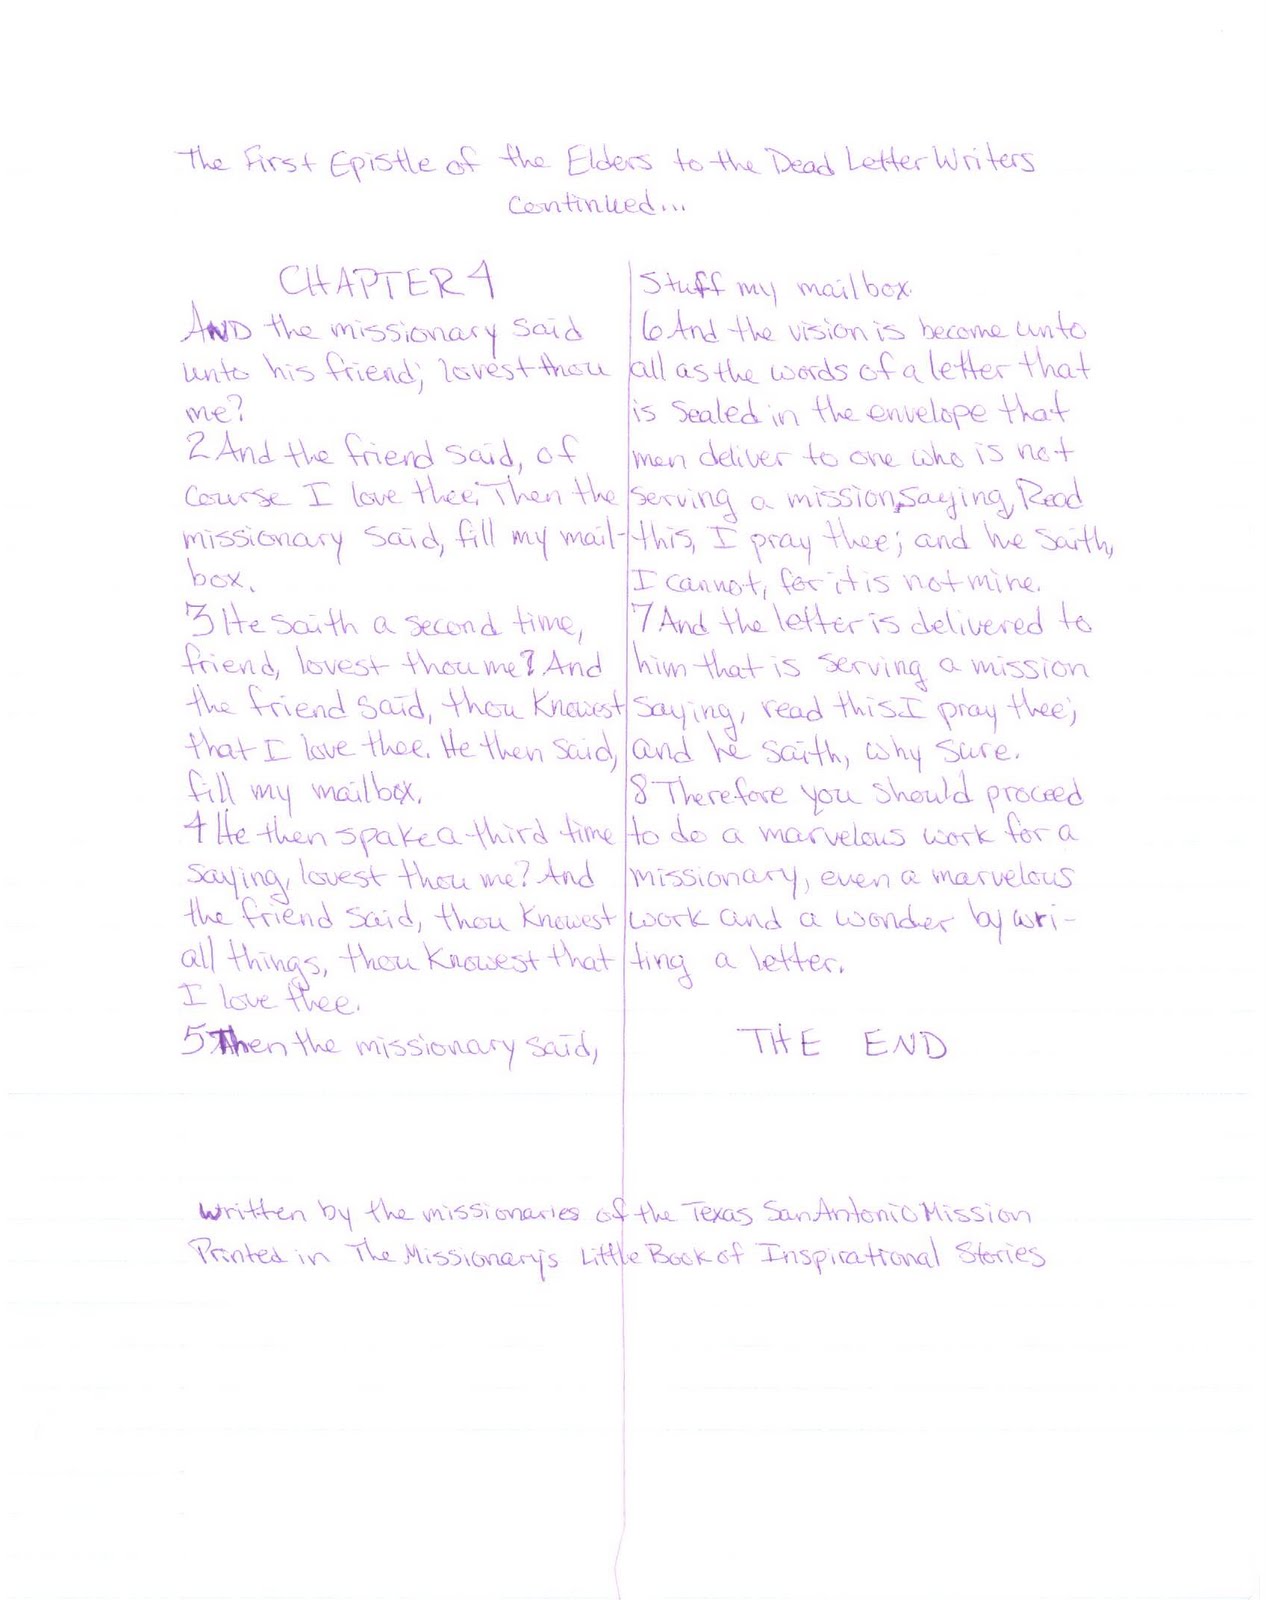 The First Epistle of the Elders to the Dead Letter Writers
continued...
CHAPTER 4
AND the missionary said
unto his friend; lovest thou
me?
2 And the friend said, of
course I love thee; Then the
missionary said, fill my mail-
box.
3 He saith a second time,
friend, lovest thou me? And
the friend said, thou knowest
that I love thee. He then said,
fill my mailbox.
4 He then spake a third time
saying, lovest thou me? And
the friend said, thou knowest
all things, thou knowest that
I love thee.
5 Then the missionary said,
Stuff my mailbox.
6 And the vision is become unto
all as the words of a letter that
is sealed in the envelope that
men deliver to one who is not
serving a mission, saying, Read
this, I pray thee; and he saith,
I cannot, for it is not mine.
7 And the letter is delivered to
him that is serving a mission
saying, read this I pray thee;
and he saith, why sure.
8 Therefore you should proceed
to do a marvelous work for a
missionary, even a marvelous
work and a wonder by wri-
ting a letter.
THE END
written by the missionaries of the Texas San Antonio Mission
Printed in The Missionary's Little Book of Inspirational Stories